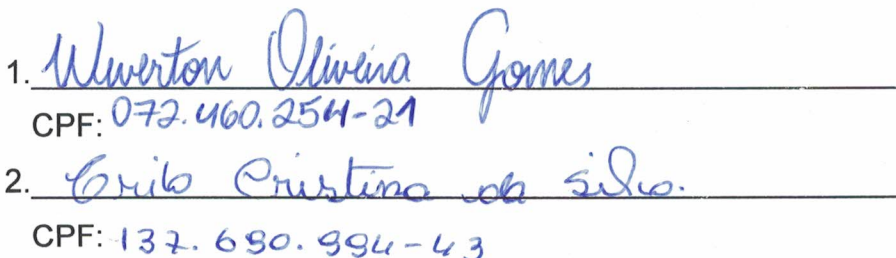 1. Wewerton Oliveira Gomes
CPF: 072.460.254-21
2. Cristina da Silva.
CPF: 137.690.994-43